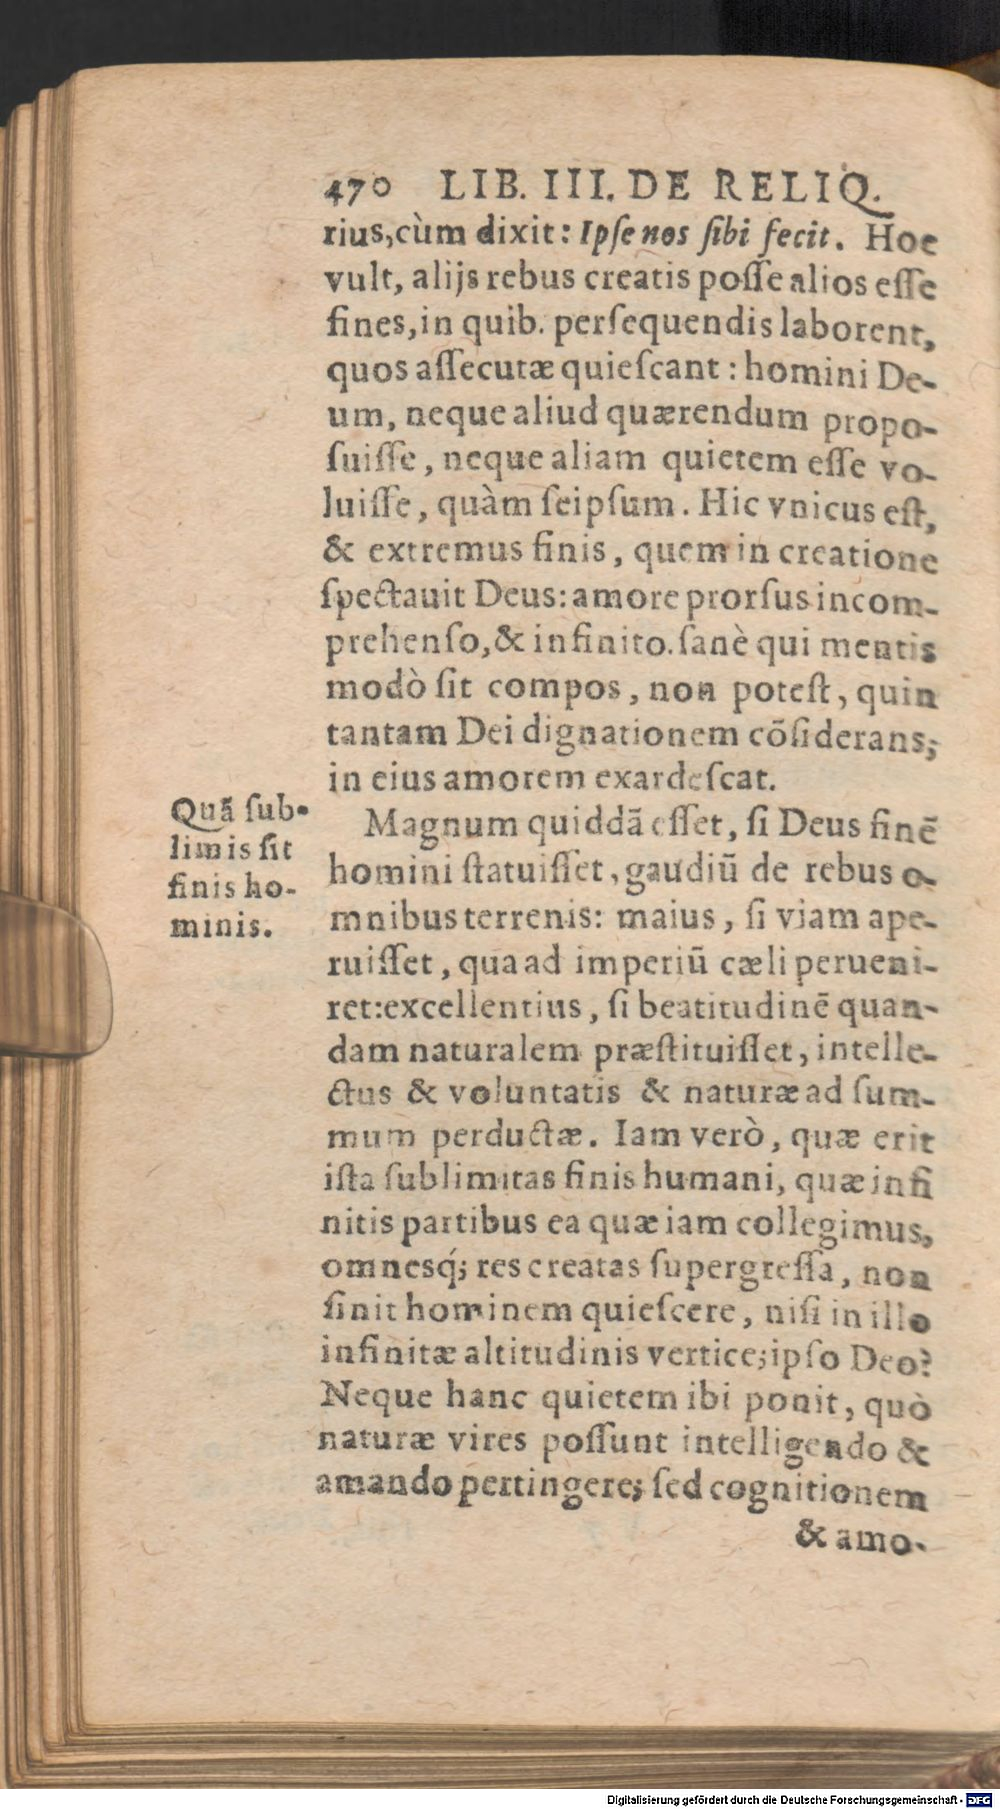 470 LIB. III. DE RELIQ.
rius,cùm dixit: Ipſe nos ſibi fecit. Hoc
vult, alijs rebus creatis poſſe alios eſſe
fines,in quib. perſequendis laborent,
quos aſſecutæ quieſcant : homini De-
um, neque aliud quærendum propo-
ſuiſſe, neque aliam quietem eſſe vo-
luiſſe, quàm ſeipſum. Hic vnicus eſt,
& extremus finis, quem in creatione
ſpectauit Deus: amore prorſus incom-
prehenſo,& infinito. ſanè qui mentis
modò ſit compos, non poteſt, quin
tantam Dei dignationem cõſiderans,
in eius amorem exardeſcat.
Quã ſub-
limis ſit
finis ho-
minis.
Magnum quiddã eſſet, ſi Deus finẽ
homini ſtatuiſſet, gaudiũ de rebus o-
mnibus terrenis: maius, ſi viam ape-
ruiſſet, qua ad imperiũ cæli perueni-
ret:excellentius, ſi beatitudinẽ quan-
dam naturalem præſtituiſſet, intelle-
ctus & voluntatis & naturæ ad ſum-
mum perductæ. Iam verò, quæ erit
iſta ſublimitas finis humani, quæ infi
nitis partibus ea quæ iam collegimus,
omnesq́; res creatas ſupergreſſa, non
ſinit hominem quieſcere, niſi in illo
infinitæ altitudinis vertice;ipſo Deo?
Neque hanc quietem ibi ponit, quò
naturæ vires poſſunt intelligendo &
amando pertingere; ſed cognitionem
& amo-
Digitalisierung gefördert durch die Deutsche Forschungsgemeinschaft - DFG